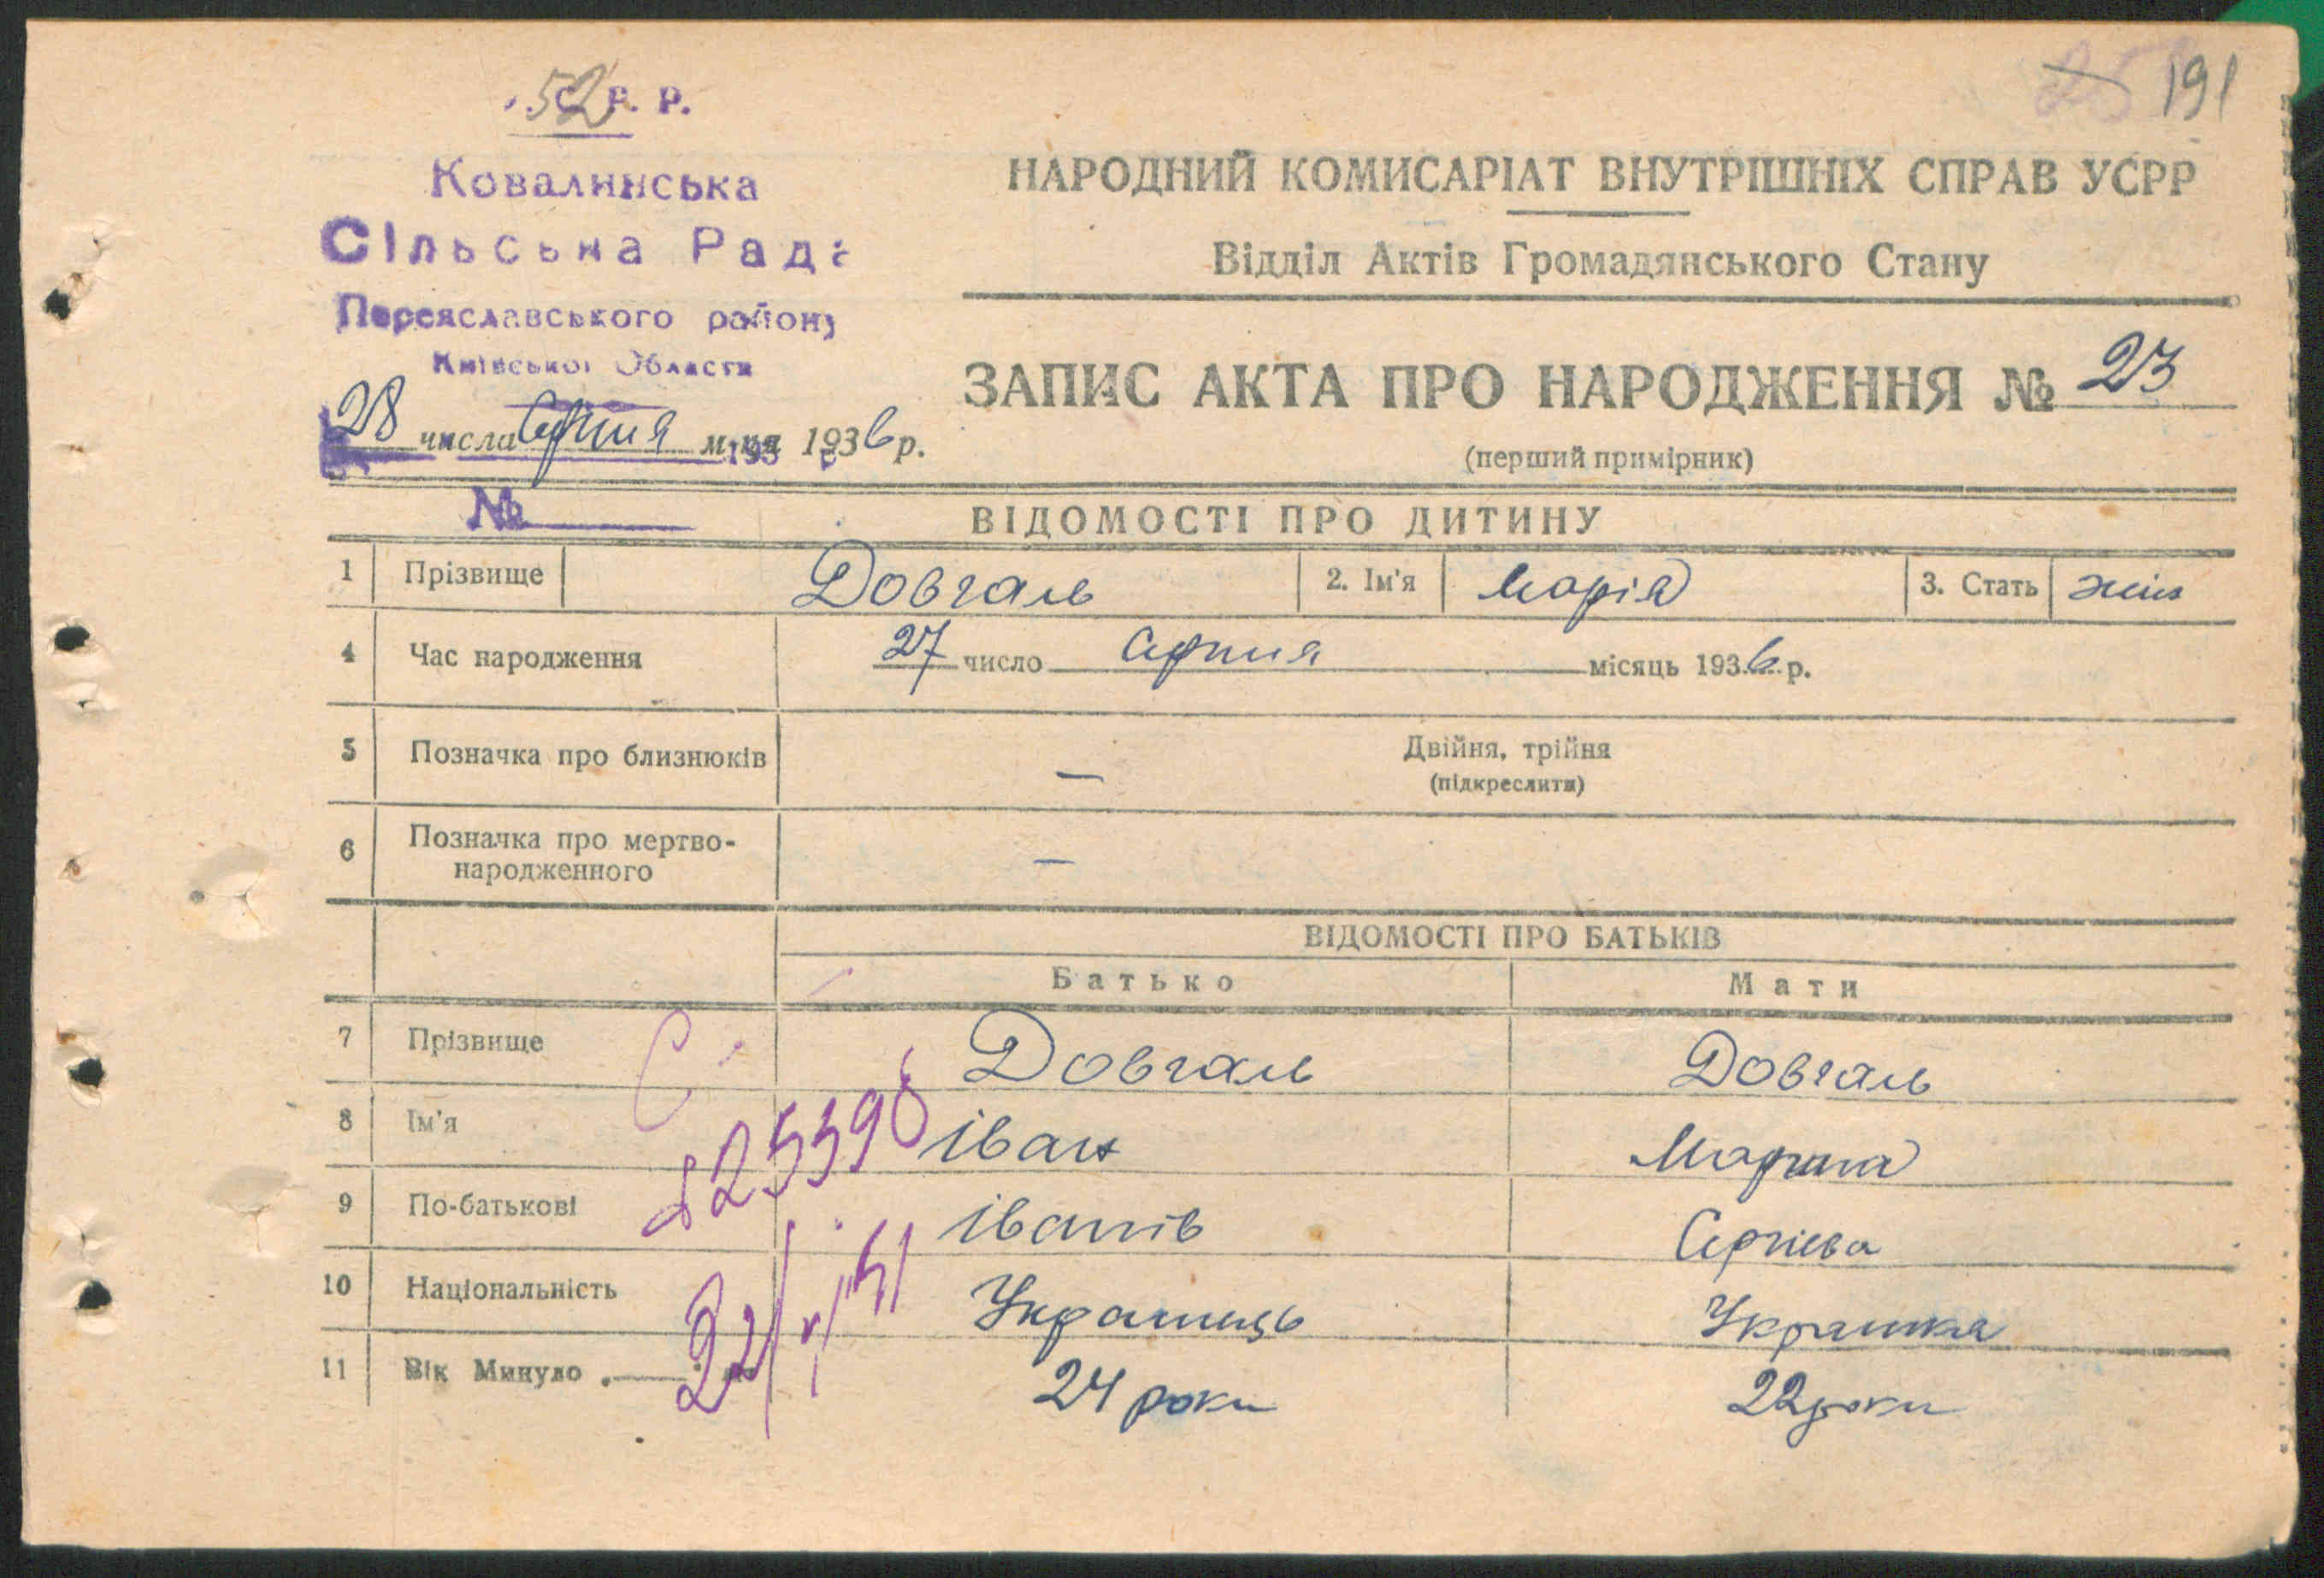 52
С. Р. Р.
25 191
Ковалинська
Сільська Рада
Переяславського району
Київської Области
НАРОДНИЙ КОМИСАРІАТ ВНУТРІШНІХ СПРАВ УСРР
Відділ Актів Громадянського Стану
ЗАПИС АКТА ПРО НАРОДЖЕННЯ № 23
28 числа Серпня м-ця 1936 р.
193 р
(перший примірник)
№
ВІДОМОСТІ ПРО ДИТИНУ
1 Прізвище Довгаль 2. Ім'я Марія 3. Стать жін
4 Час народження 27 число Серпня місяць 1936 р.
5 Позначка про близнюків — Двійня, трійня
(підкреслити)
6 Позначка про мертво-
народженного —
ВІДОМОСТІ ПРО БАТЬКІВ
Батько Мати
7 Прізвище Довгаль Довгаль
8 Ім'я іван Марина
9 По-батькові іванів Сергієва
10 Національність Українець Українка
11 Вік Минуло 24 роки 22 роки